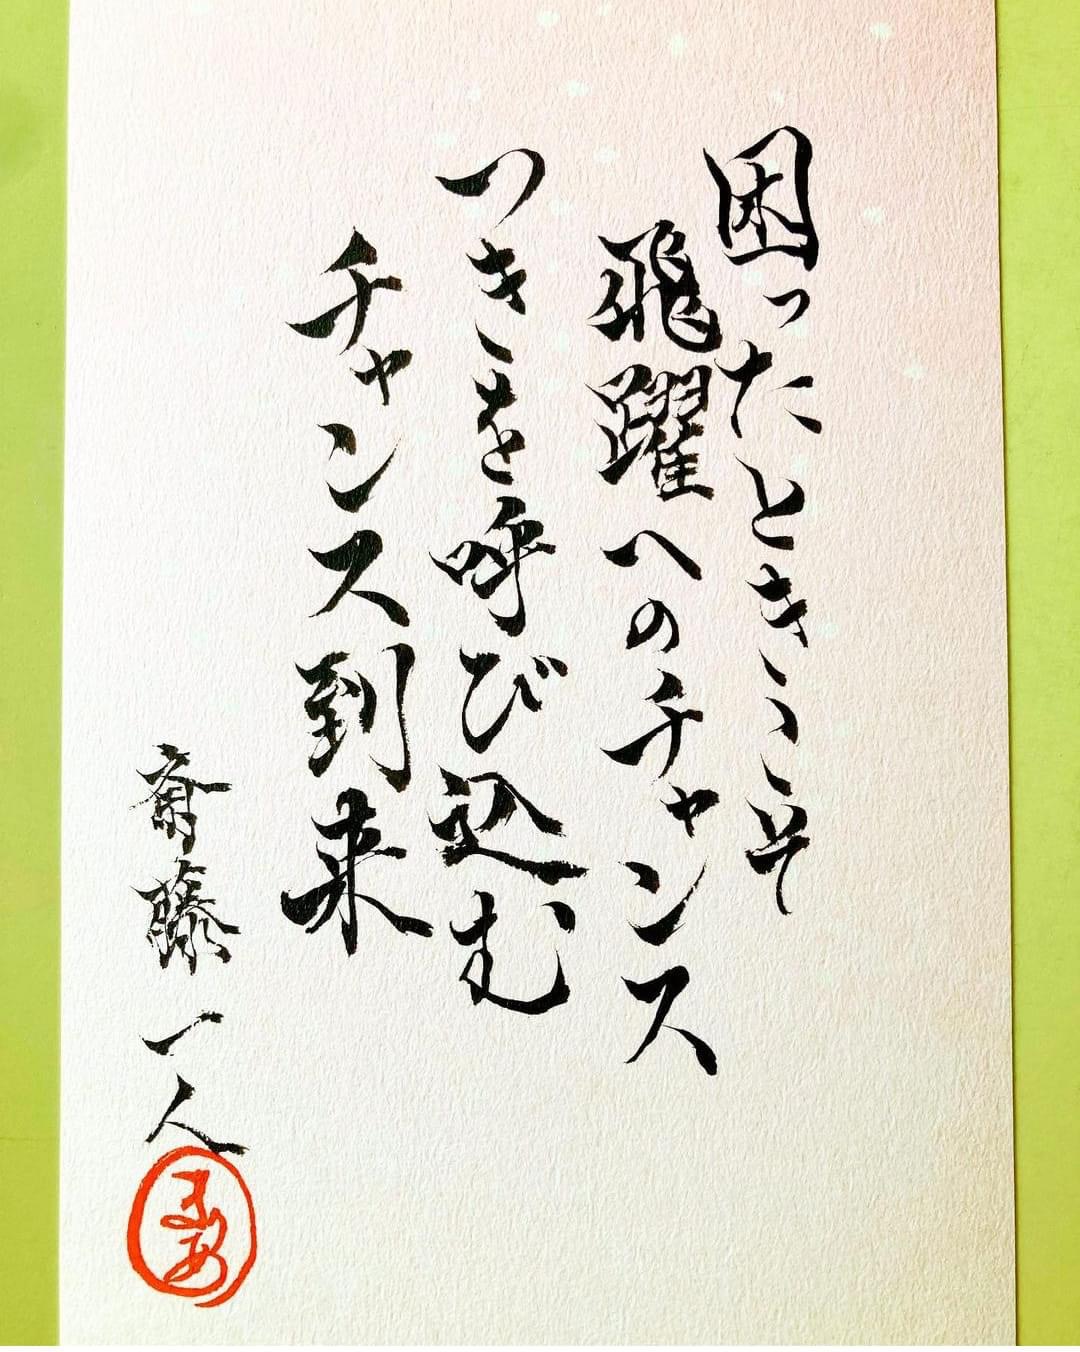 困ったときこそ
飛躍へのチャンス
つきを呼び込む
チャンス到来
斎藤一人
まあ